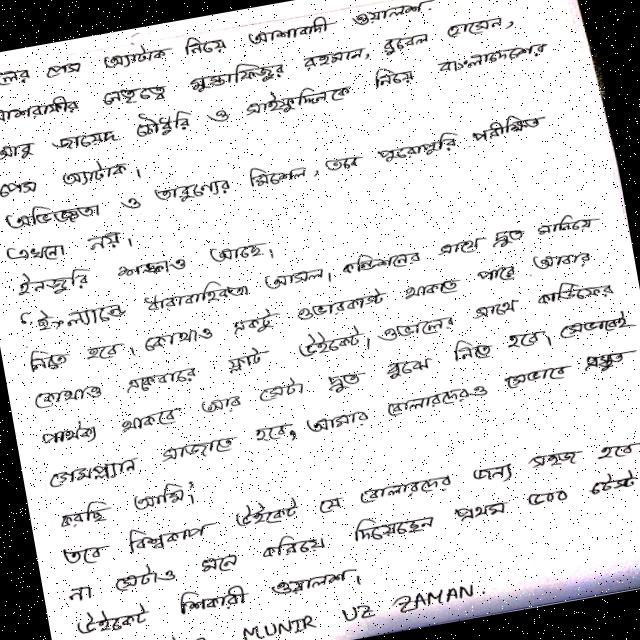 পেস অ্যাটাক নিয়ে আশাবাদী ওয়ালশ
মাশরাফীর নেতৃত্বে মুস্তাফিজুর রহমান, রুবেল হোসেন,
আবু জায়েদ চৌধুরি ও সাইফুদ্দিনকে নিয়ে বাংলাদেশের
পেস অ্যাটাক।
অভিজ্ঞতা ও তারুণ্যের মিশেল, তবে পুরোপুরি পরীক্ষিত
এখনো নয়।
ইনজুরি শঙ্কাও আছে।
ইংল্যান্ডে ধারাবাহিকতা আসল। কন্ডিশনের সাথে দ্রুত মানিয়ে
নিতে হবে। কোথাও একটু ওভারকাস্ট থাকতে পারে আবার
কোথাও একেবারে ফ্লাট উইকেট। ওভালের সাথে কার্ডিফের
পার্থক্য থাকবে আর সেটা দ্রুত বুঝে নিতে হবে। সেভাবেই
গেমপ্ল্যান সাজাতে হবে, আমার বোলারদেরও সেভাবে প্রস্তুত
করছি আমি।
তবে বিশ্বকাপ উইকেট যে বোলারদের জন্য সহজ হবে
না সেটাও মনে করিয়ে দিয়েছেন প্রথম ৫০০ টেস্ট
উইকেট শিকারী ওয়ালশ।
MUNIR UZ ZAMAN.